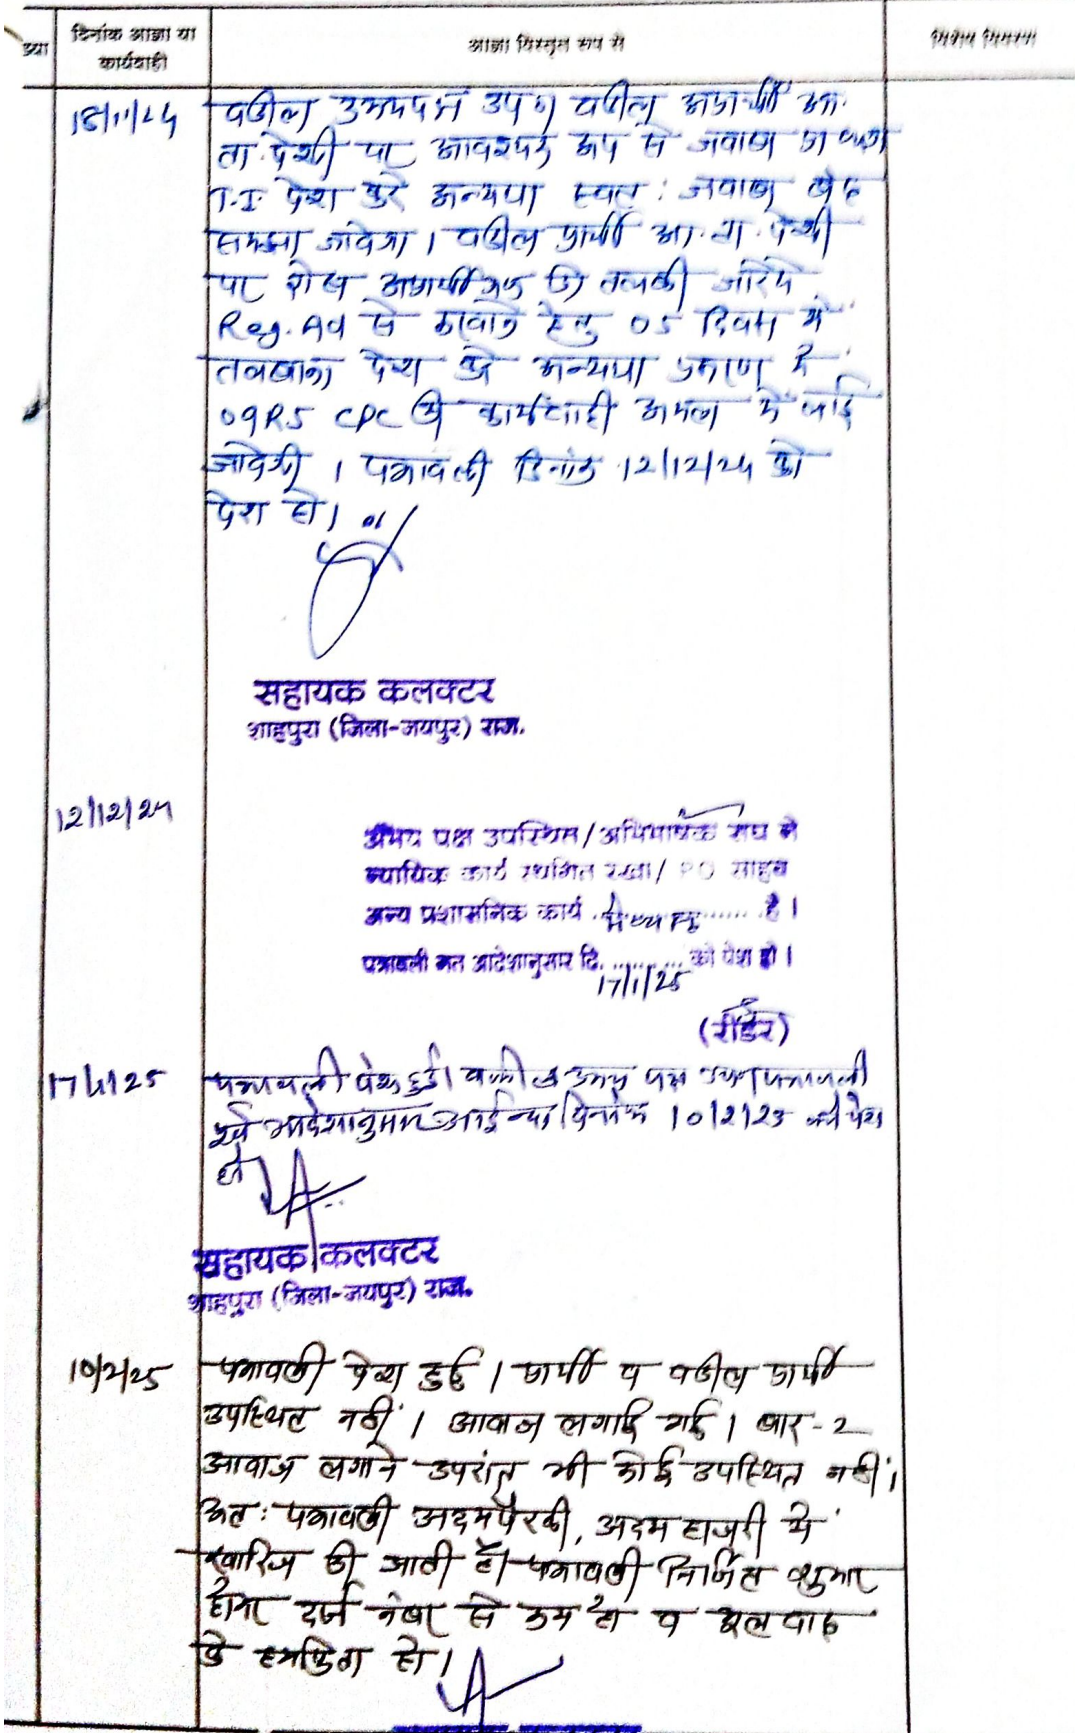 ख्या
दिनांक आज्ञा या
कार्यवाही
आज्ञा विस्तृत रूप से
विशेष विवरण
18/11/24
वकील उभयपक्ष उप० वकील अप्रार्थी आ.
ता. पेशी पर आवश्यक रूप से जवाब
T.I. पेश करे अन्यथा स्वत: जवाब बंद
समझा जावेगा। वकील प्रार्थी आ. ता. पेशी
पर शेष अप्रार्थीगण की तलबी जरिये
Reg. AD से करवाने हेतु 05 दिवस में
तलबाना पेश करे अन्यथा प्रकरण में
O9R5 CPC की कार्यवाही अमल में लाई
जावेगी। पत्रावली दिनांक 12/12/24 को
पेश हो।
सहायक कलक्टर
शाहपुरा (जिला-जयपुर) राज.
12/12/24
उभय पक्ष उपस्थित/अभिभाषक संघ ने
न्यायिक कार्य स्थगित रखा/ PO साहब
अन्य प्रशासनिक कार्य में व्यस्त है।
पत्रावली गत आदेशानुसार दि. 17/1/25 को पेश हो।
(रीडर)
17/1/25
पत्रावली पेश हुई। वकील उभय पक्ष उप० पत्रावली
पूर्व आदेशानुसार आईन्दा दिनांक 10/2/25 को पेश
हो
सहायक कलक्टर
शाहपुरा (जिला-जयपुर) राज.
10/2/25
पत्रावली पेश हुई। प्रार्थी व वकील प्रार्थी
उपस्थित नहीं। आवाज लगाई गई। बार-2
आवाज लगाने उपरांत भी कोई उपस्थित नहीं।
अत: पत्रावली अदमपैरवी, अदम हाजरी में
खारिज की जाती है। पत्रावली निर्णित शुमार
होकर दर्ज नंबर से कम हो व
हो।